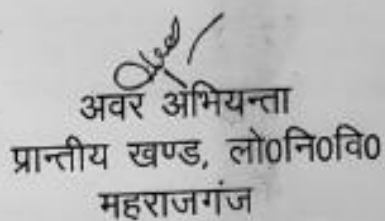 अवर अभियन्ता
प्रान्तीय खण्ड, लो0नि0वि0
महराजगंज